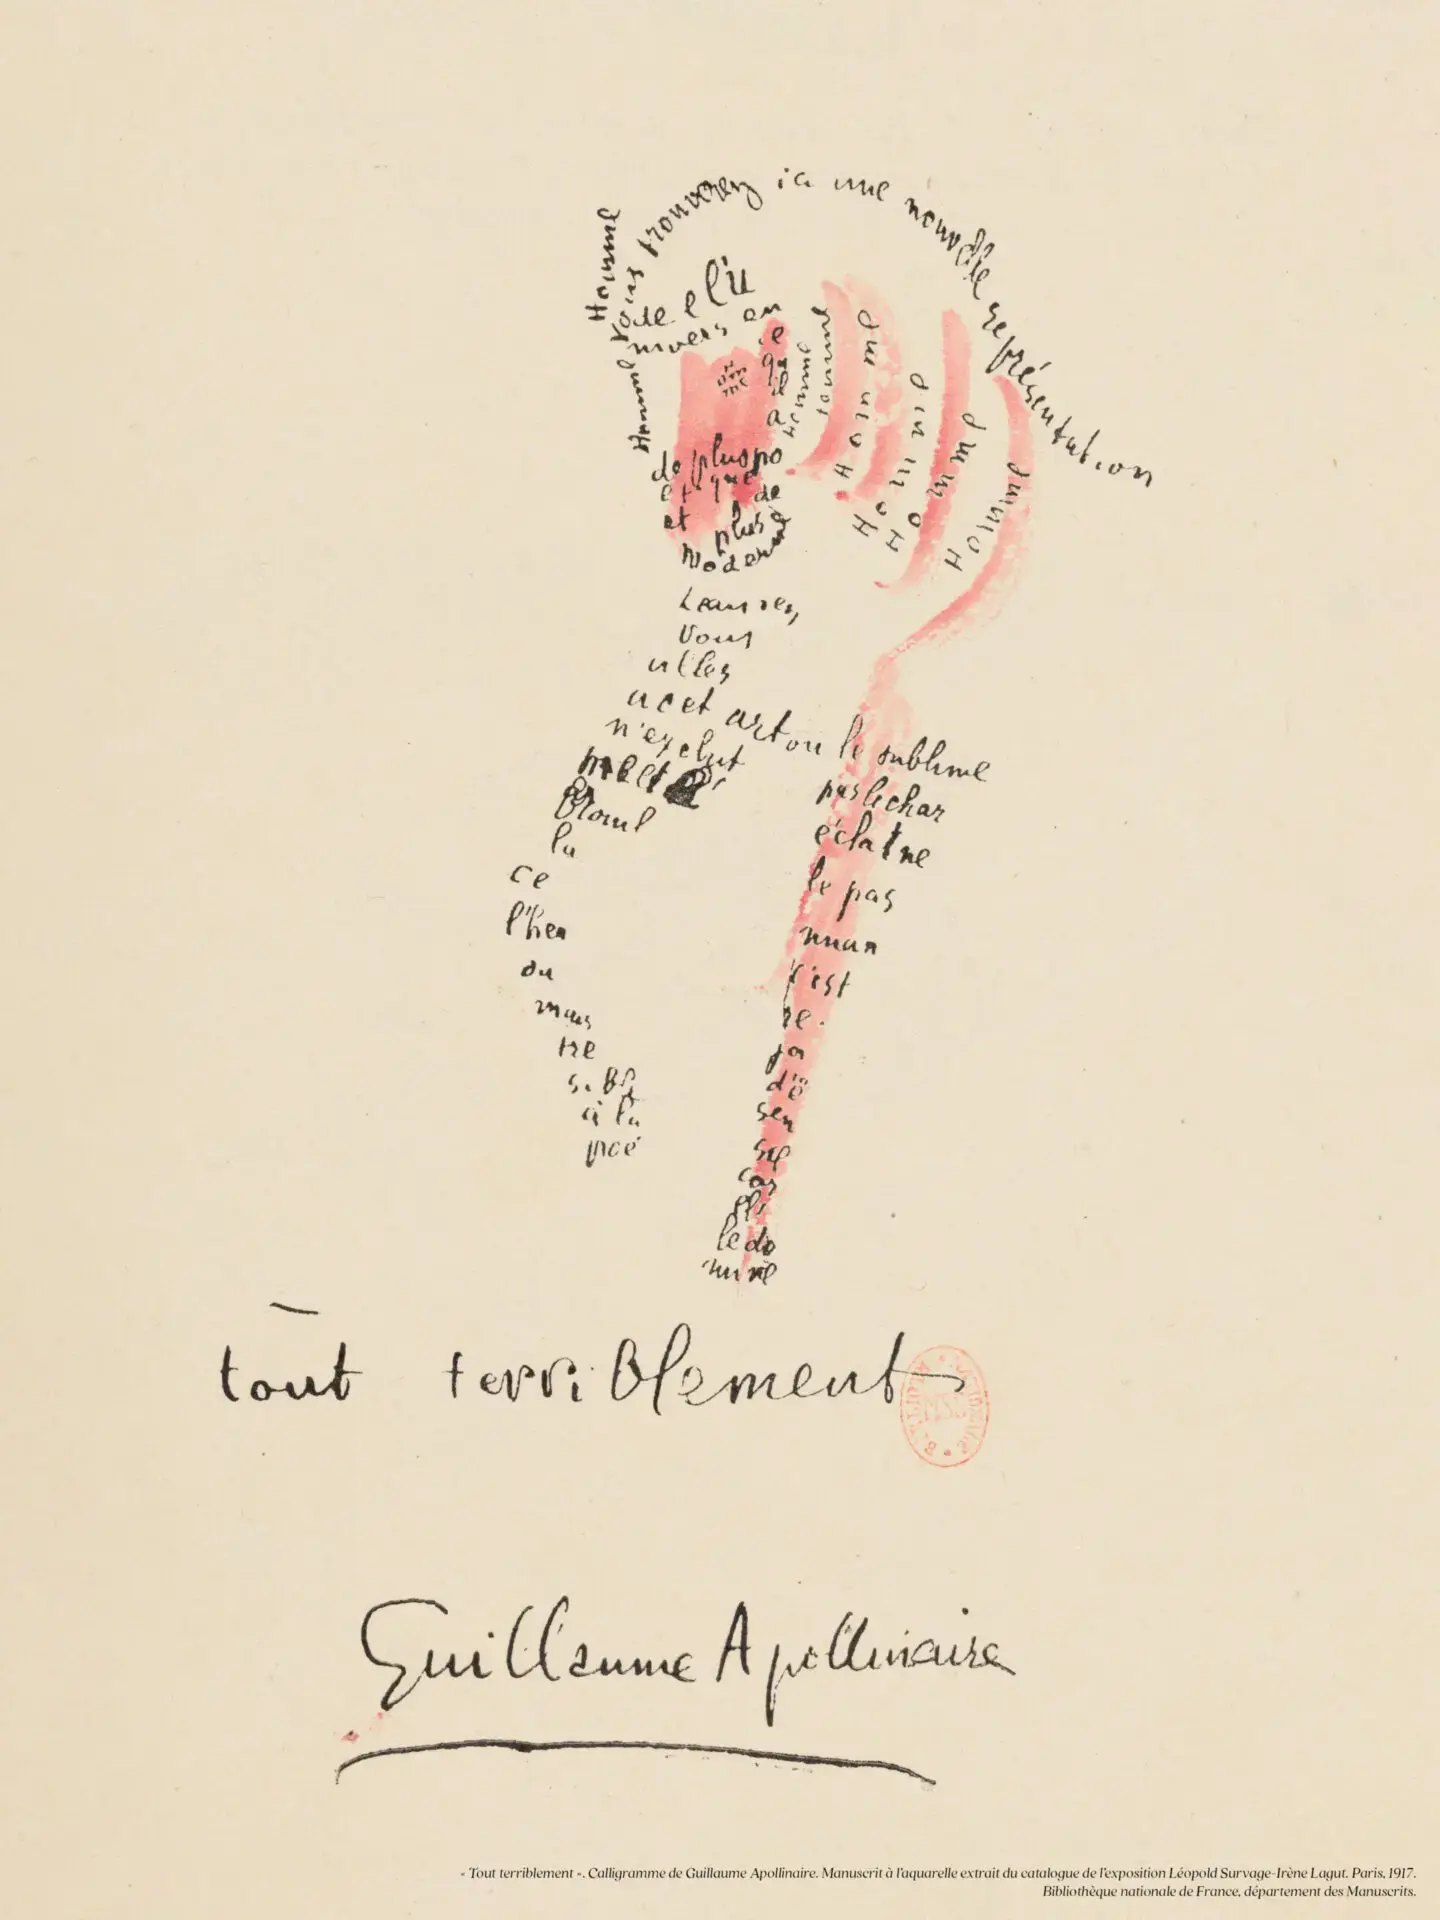 Homme
Vous trouverez ici une nouvelle représentation
de l'u
nivers en
ce
qu'il
a
de plus po
étique
et de
plus
moderne
Homme
Hom
me
Homme
Homme
Homme
Homme
Homme
Homme
Laissez
vous
aller
à cet art où le sublime
n'exclut
pas le char
me et
éclat ne
brouil
le pas
la
nuan
ce
c'est
l'heu
re
ou
ja
mais
d'ê
tre
sen
sible
à la
poé
sie
car
elle do
mine
tout terriblement
Guillaume Apollinaire
« Tout terriblement ». Calligramme de Guillaume Apollinaire. Manuscrit à l'aquarelle extrait du catalogue de l'exposition Léopold Survage-Irène Lagut. Paris, 1917.
Bibliothèque nationale de France, département des Manuscrits.